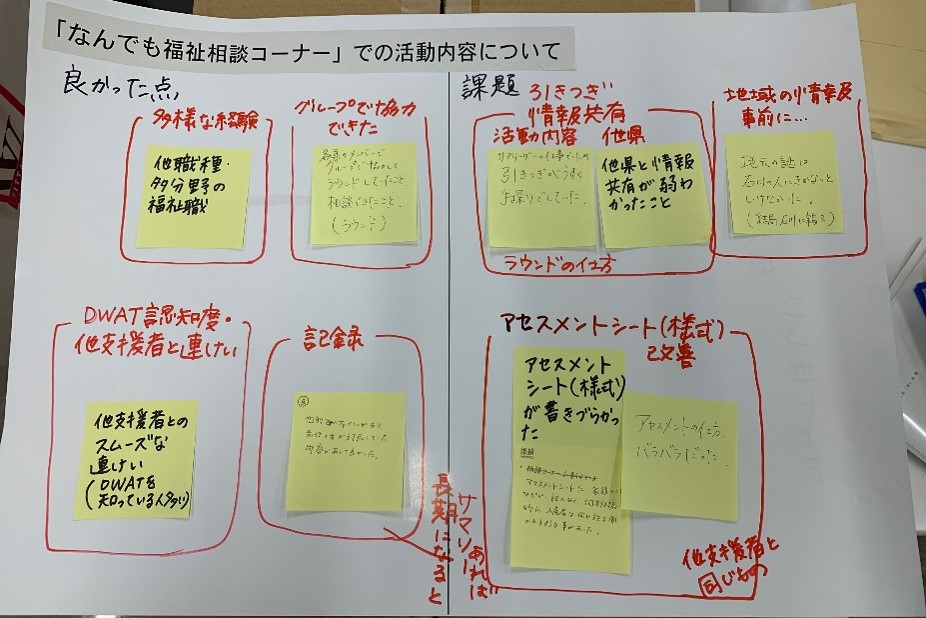 「なんでも福祉相談コーナー」での活動内容について
良かった点
多様な経験
他職種・
多分野の
福祉職
グループで協力
できた
グループで協力して
ラウンドしていたこと、
相談できたこと。
(ラウンド)
DWAT認知度・
他支援者と連けい
他支援者との
スムーズな
連けい
(DWATを
知っている人多い)
記録
長期になると
サマリー
あれば
課題
引きつぎ
情報共有
活動内容
他県
引きつぎがうすく
手探りでしていた。
他県と情報
共有が弱わ
かったこと
ラウンドの仕方
地域の情報
事前に…
地元の謎は
石川の人にきかないと
いけなかった。
(結局石川に頼る)
アセスメントシート(様式)
改善
アセスメント
シート(様式)
が書きづらかっ
た
課題
アセスメントシートに
アセスメントの仕方
バラバラだった。
他支援者と
同じもの